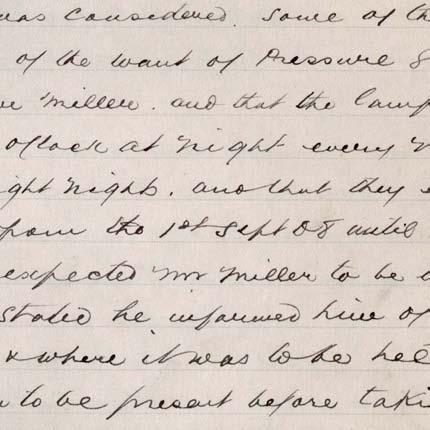 was considered. Some of th
of the want of Pressure &
Miller. and that the Lamp
oClock at night every
ight nights. and that they
from the 1st Sept 08 until
expected Mr Miller to be
stated he informed him of
& where it was to be hel
to be present before taki